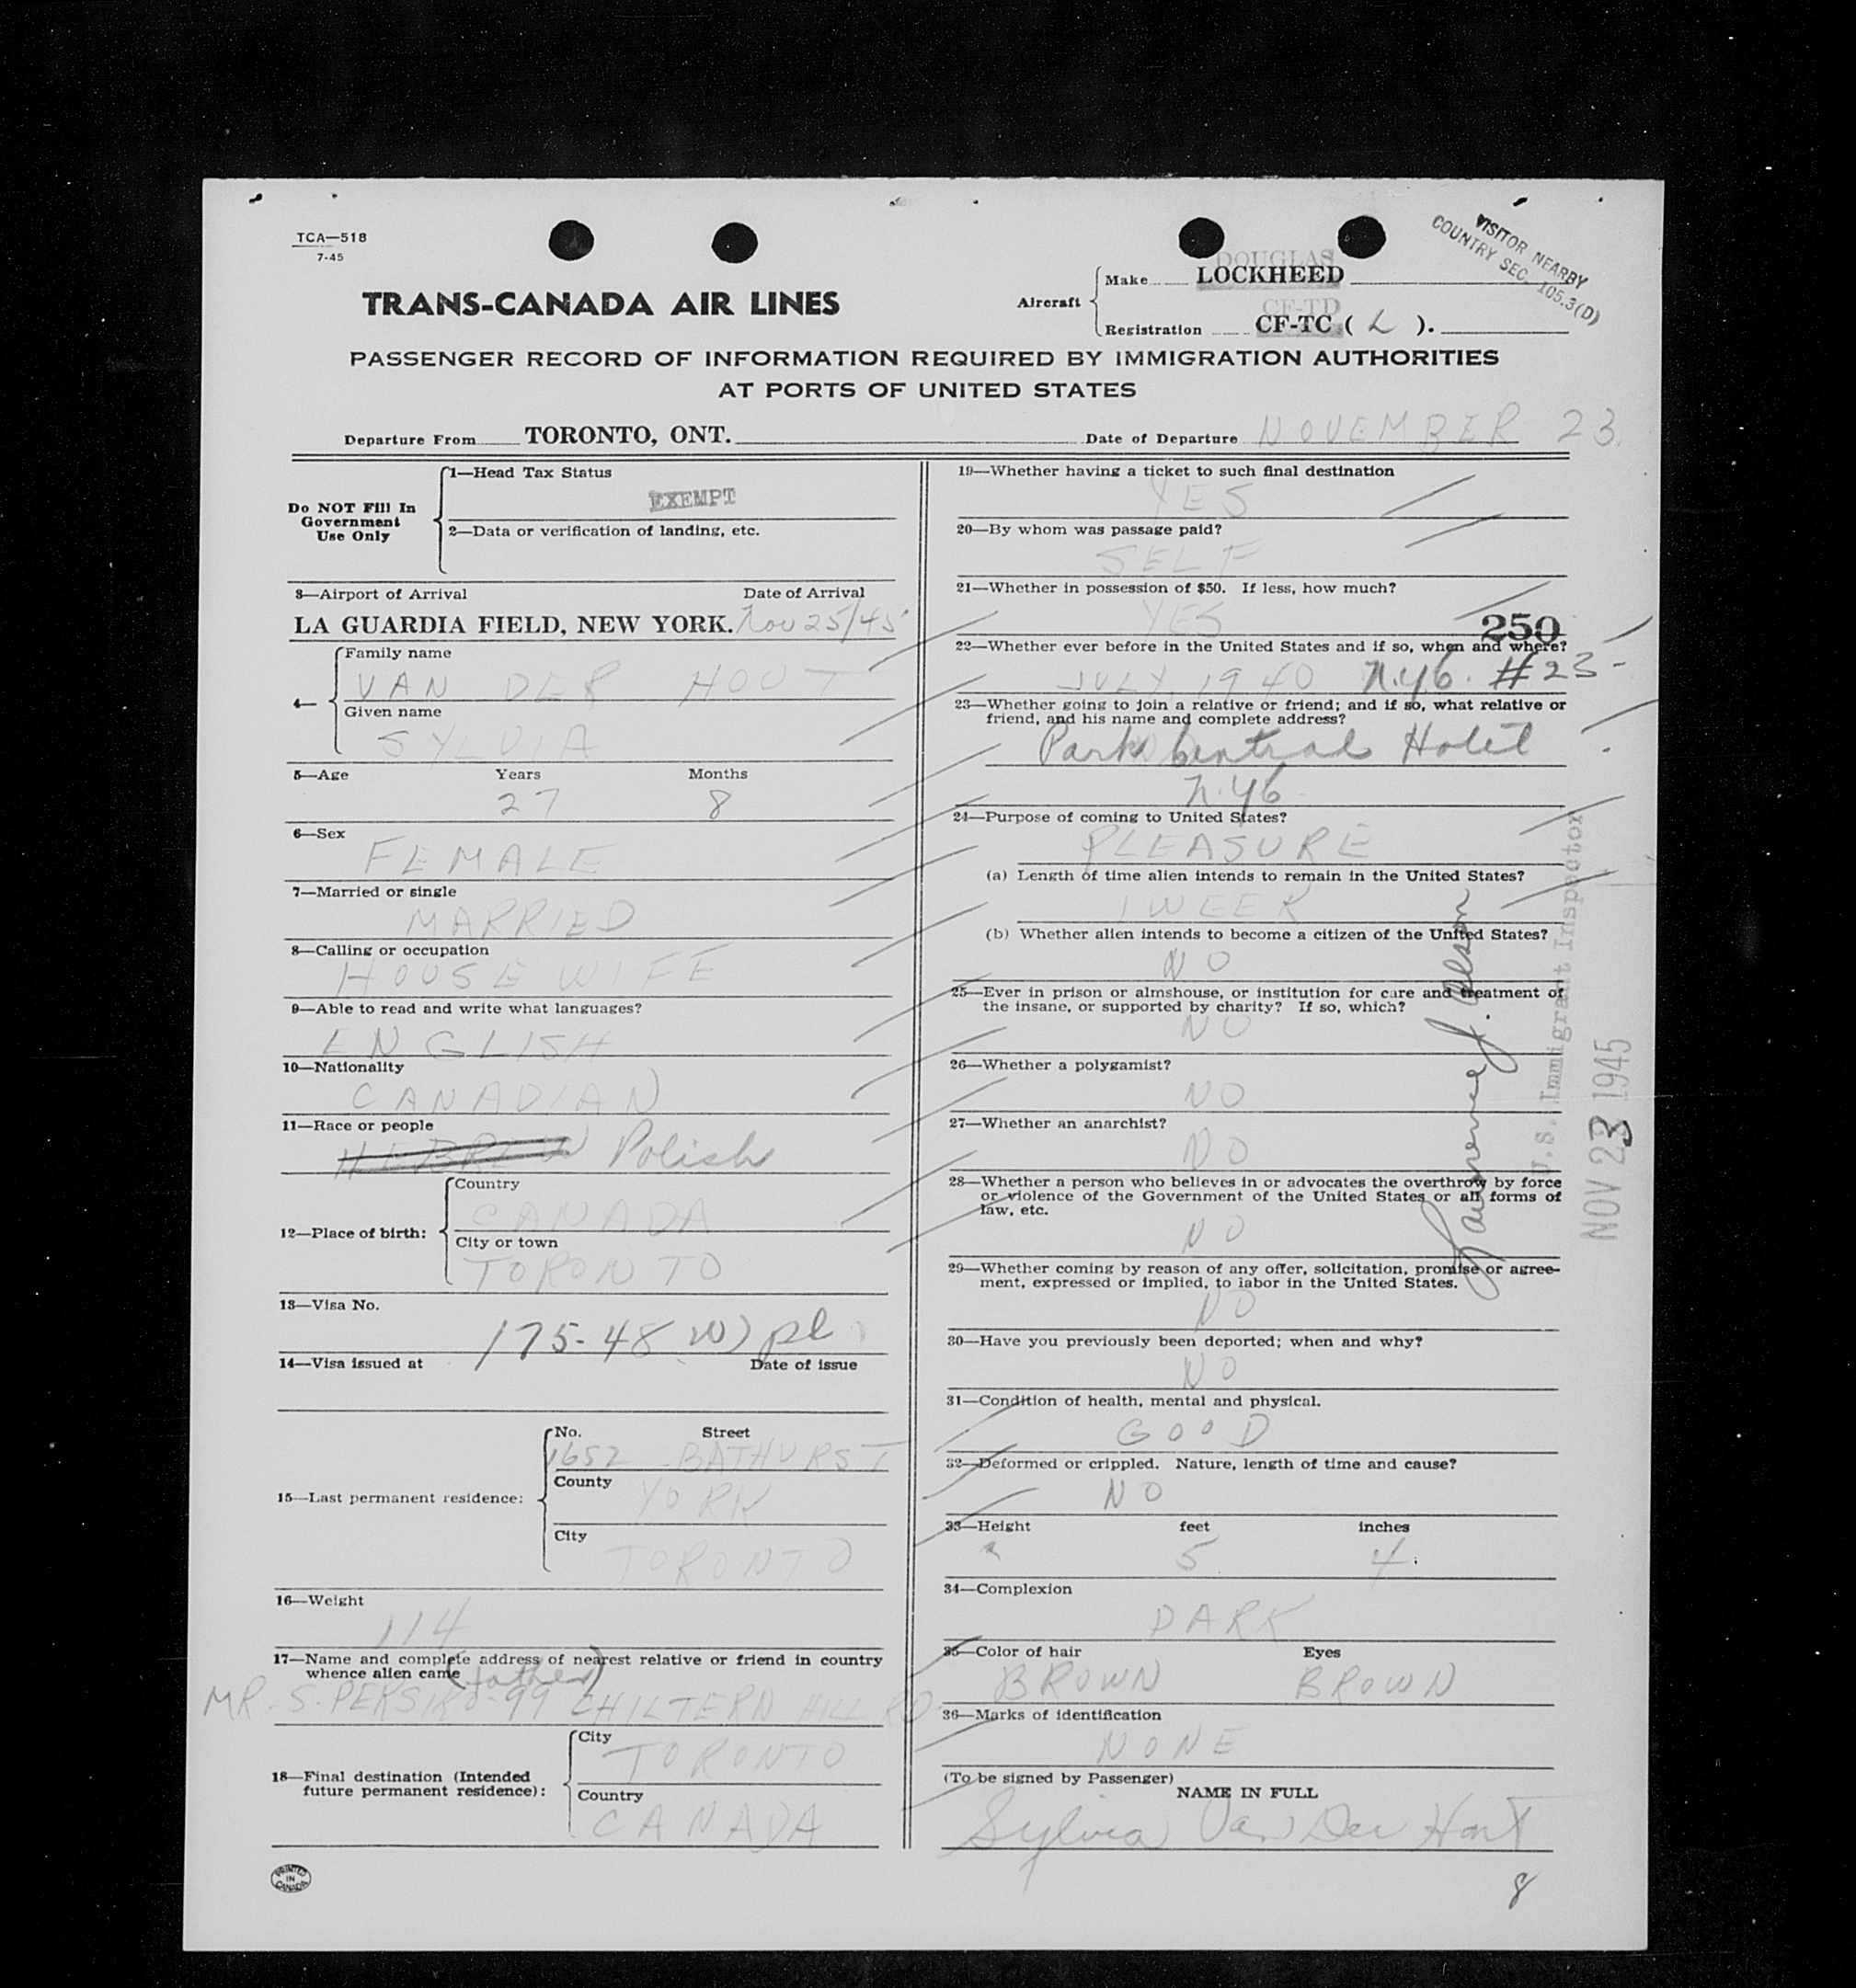 TCA—518
7-45
VISITOR NEARBY
COUNTRY SEC. 105.3(D)
TRANS-CANADA AIR LINES
Aircraft
Make
DOUGLAS
LOCKHEED
CF-TD
Registration CF-TC ( L ).
PASSENGER RECORD OF INFORMATION REQUIRED BY IMMIGRATION AUTHORITIES
AT PORTS OF UNITED STATES
Departure From TORONTO, ONT. Date of Departure NOVEMBER 23
Do NOT Fill In
Government
Use Only
1—Head Tax Status
EXEMPT
2—Data or verification of landing, etc.
3—Airport of Arrival Date of Arrival
LA GUARDIA FIELD, NEW YORK. Nov 25/45
4—
Family name
VAN DER HOUT
Given name
SYLVIA
5—Age Years Months
27 8
6—Sex
FEMALE
7—Married or single
MARRIED
8—Calling or occupation
HOUSEWIFE
9—Able to read and write what languages?
ENGLISH
10—Nationality
CANADIAN
11—Race or people
HEBREW Polish
12—Place of birth:
Country
CANADA
City or town
TORONTO
13—Visa No.
175-48 W) pl
14—Visa issued at Date of issue
15—Last permanent residence:
No. Street
1652 BATHURST
County
YORK
City
TORONTO
16—Weight
114
17—Name and complete address of nearest relative or friend in country
whence alien came (father)
MR. S. PERSIKO-99 CHILTERN HILL RD
18—Final destination (Intended
future permanent residence):
City
TORONTO
Country
CANADA
PRINTED
IN
CANADA
19—Whether having a ticket to such final destination
YES
20—By whom was passage paid?
SELF
21—Whether in possession of $50. If less, how much?
YES
250
22—Whether ever before in the United States and if so, when and where?
JULY, 1940 N.Y.C. #23-
23—Whether going to join a relative or friend; and if so, what relative or
friend, and his name and complete address?
Park Central Hotel
N.Y.C.
24—Purpose of coming to United States?
PLEASURE
(a) Length of time alien intends to remain in the United States?
1 WEEK
(b) Whether alien intends to become a citizen of the United States?
NO
25—Ever in prison or almshouse, or institution for care and treatment of
the insane, or supported by charity? If so, which?
NO
26—Whether a polygamist?
NO
27—Whether an anarchist?
NO
28—Whether a person who believes in or advocates the overthrow by force
or violence of the Government of the United States or all forms of
law, etc.
NO
29—Whether coming by reason of any offer, solicitation, promise or agree-
ment, expressed or implied, to labor in the United States.
NO
30—Have you previously been deported; when and why?
NO
31—Condition of health, mental and physical.
GOOD
32—Deformed or crippled. Nature, length of time and cause?
NO
33—Height feet inches
5 4
34—Complexion
DARK
35—Color of hair Eyes
BROWN BROWN
36—Marks of identification
NONE
(To be signed by Passenger)
NAME IN FULL
Sylvia Van Der Hout
8
Lawrence J. Olson
U.S. Immigrant Inspector
NOV 23 1945